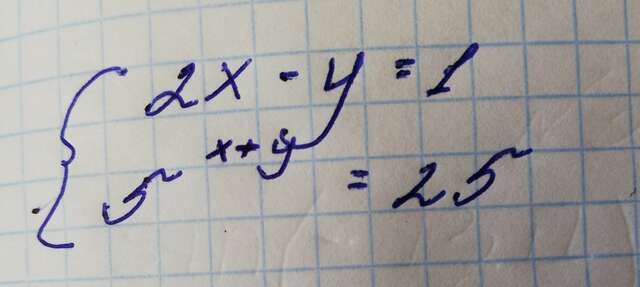 2x - y = 1
5^{x+y} = 25